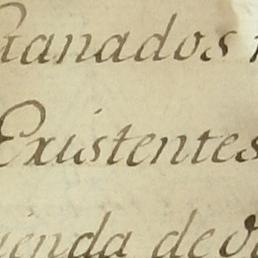 Ganados
Existentes
ienda de